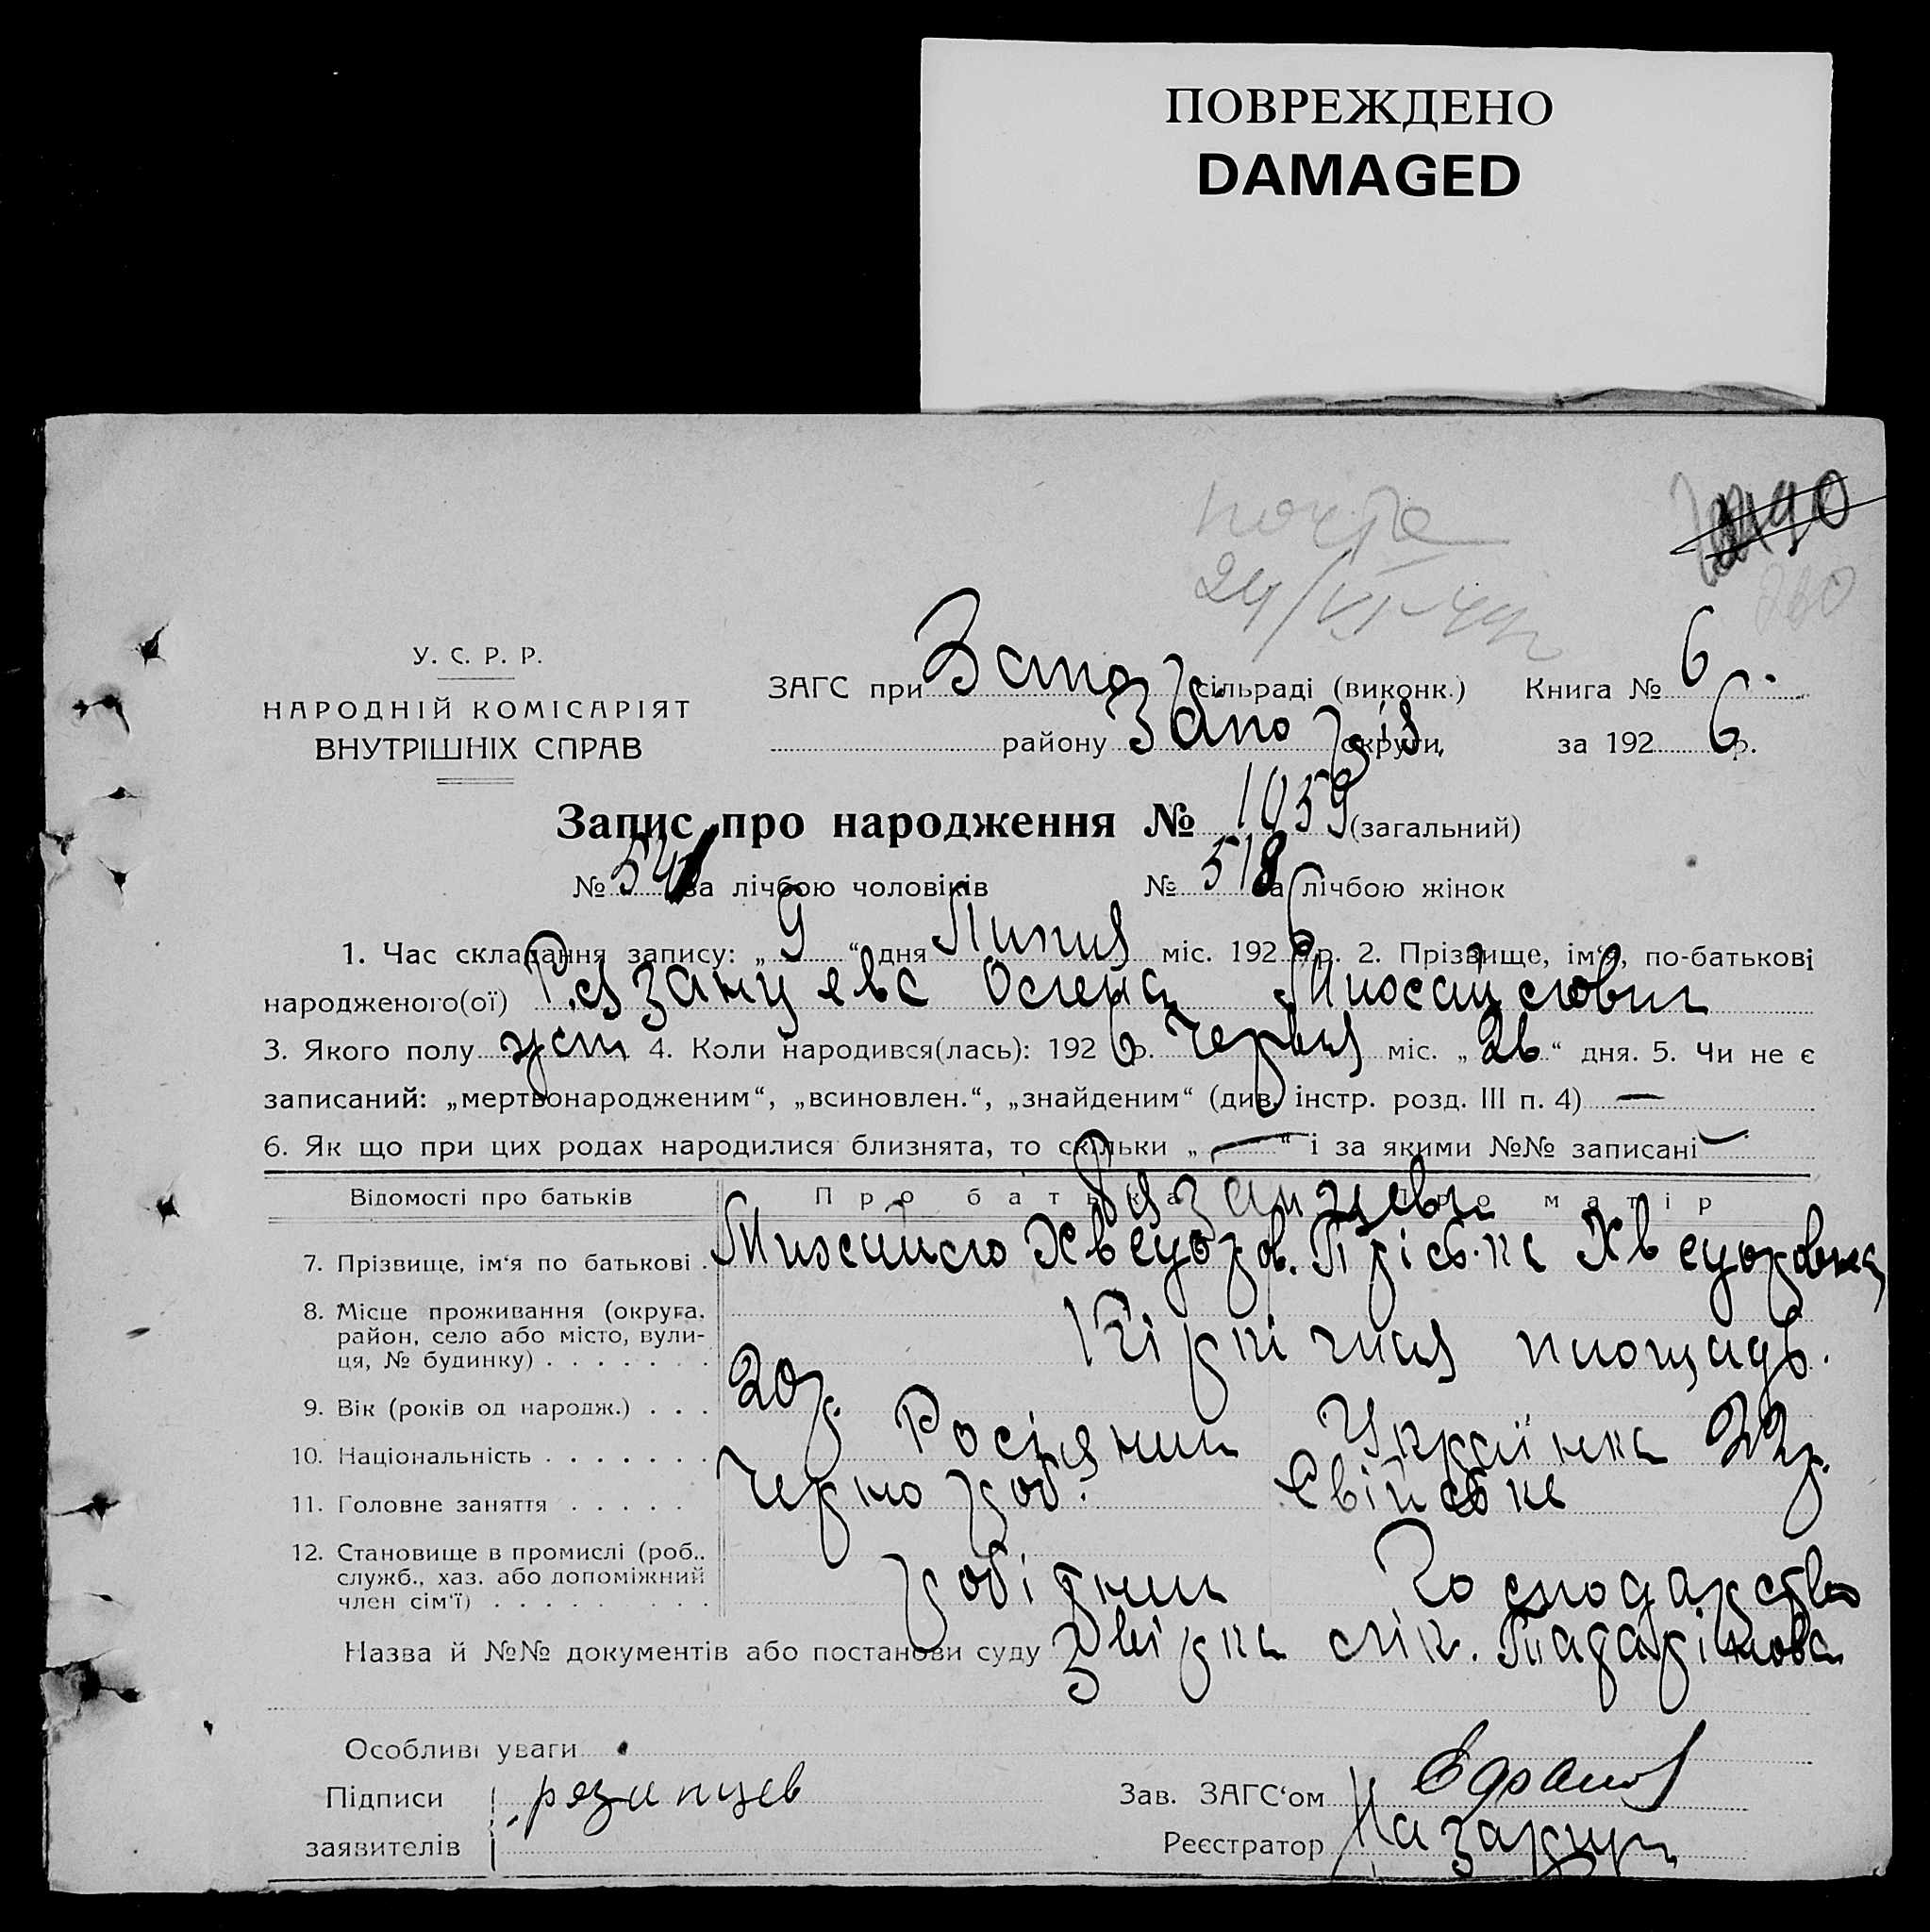 ПОВРЕЖДЕНО
DAMAGED
почта
24/VI-44г
260
У. С. Р. Р.
НАРОДНІЙ КОМІСАРІЯТ
ВНУТРІШНІХ СПРАВ
ЗАГС при Запор. сільраді (виконк.) Книга № 6.
району Запорізь округи, за 192 6 р.
Запис про народження № 1059 (загальний)
№ 541 за лічбою чоловіків № 518 за лічбою жінок
1. Час складання запису: „ 9 “ дня Липня міс. 192 6 р. 2. Прізвище, ім‘я, по-батькові
народженого(ої) Рязанцева Олена Михайлович
3. Якого полу жін 4. Коли народився(лась): 192 6 р. Червня міс. „ 26 “ дня. 5. Чи не є
записаний: „мертвонародженим“, „всиновлен.“, „знайденим“ (див. інстр. розд. III п. 4) —
6. Як що при цих родах народилися близнята, то скільки „ — “ і за якими №№ записані —
Відомості про батьків Про батька Про матір
Рязанцеви
7. Прізвище, ім‘я по батькові . Михайло Хведоров. Пріська Хведоровна
8. Місце проживання (округа,
район, село або місто, вули-
ця, № будинку) . . . . . . . Кірпічная площадь.
9. Вік (років од народж.) . . . 20р.
10. Національність . . . . . . . Росіянин Українка 22р.
11. Головне заняття . . . . . Чернороб. Свійське
12. Становище в промислі (роб.,
служб., хаз. або допоміжний
член сім‘ї) . . . . . . . . . робітник Господарство
Назва й №№ документів або постанови суду Звірка лік.
Особливі уваги
Підписи рязанцев Зав. ЗАГС‘ом
заявителів Реєстратор